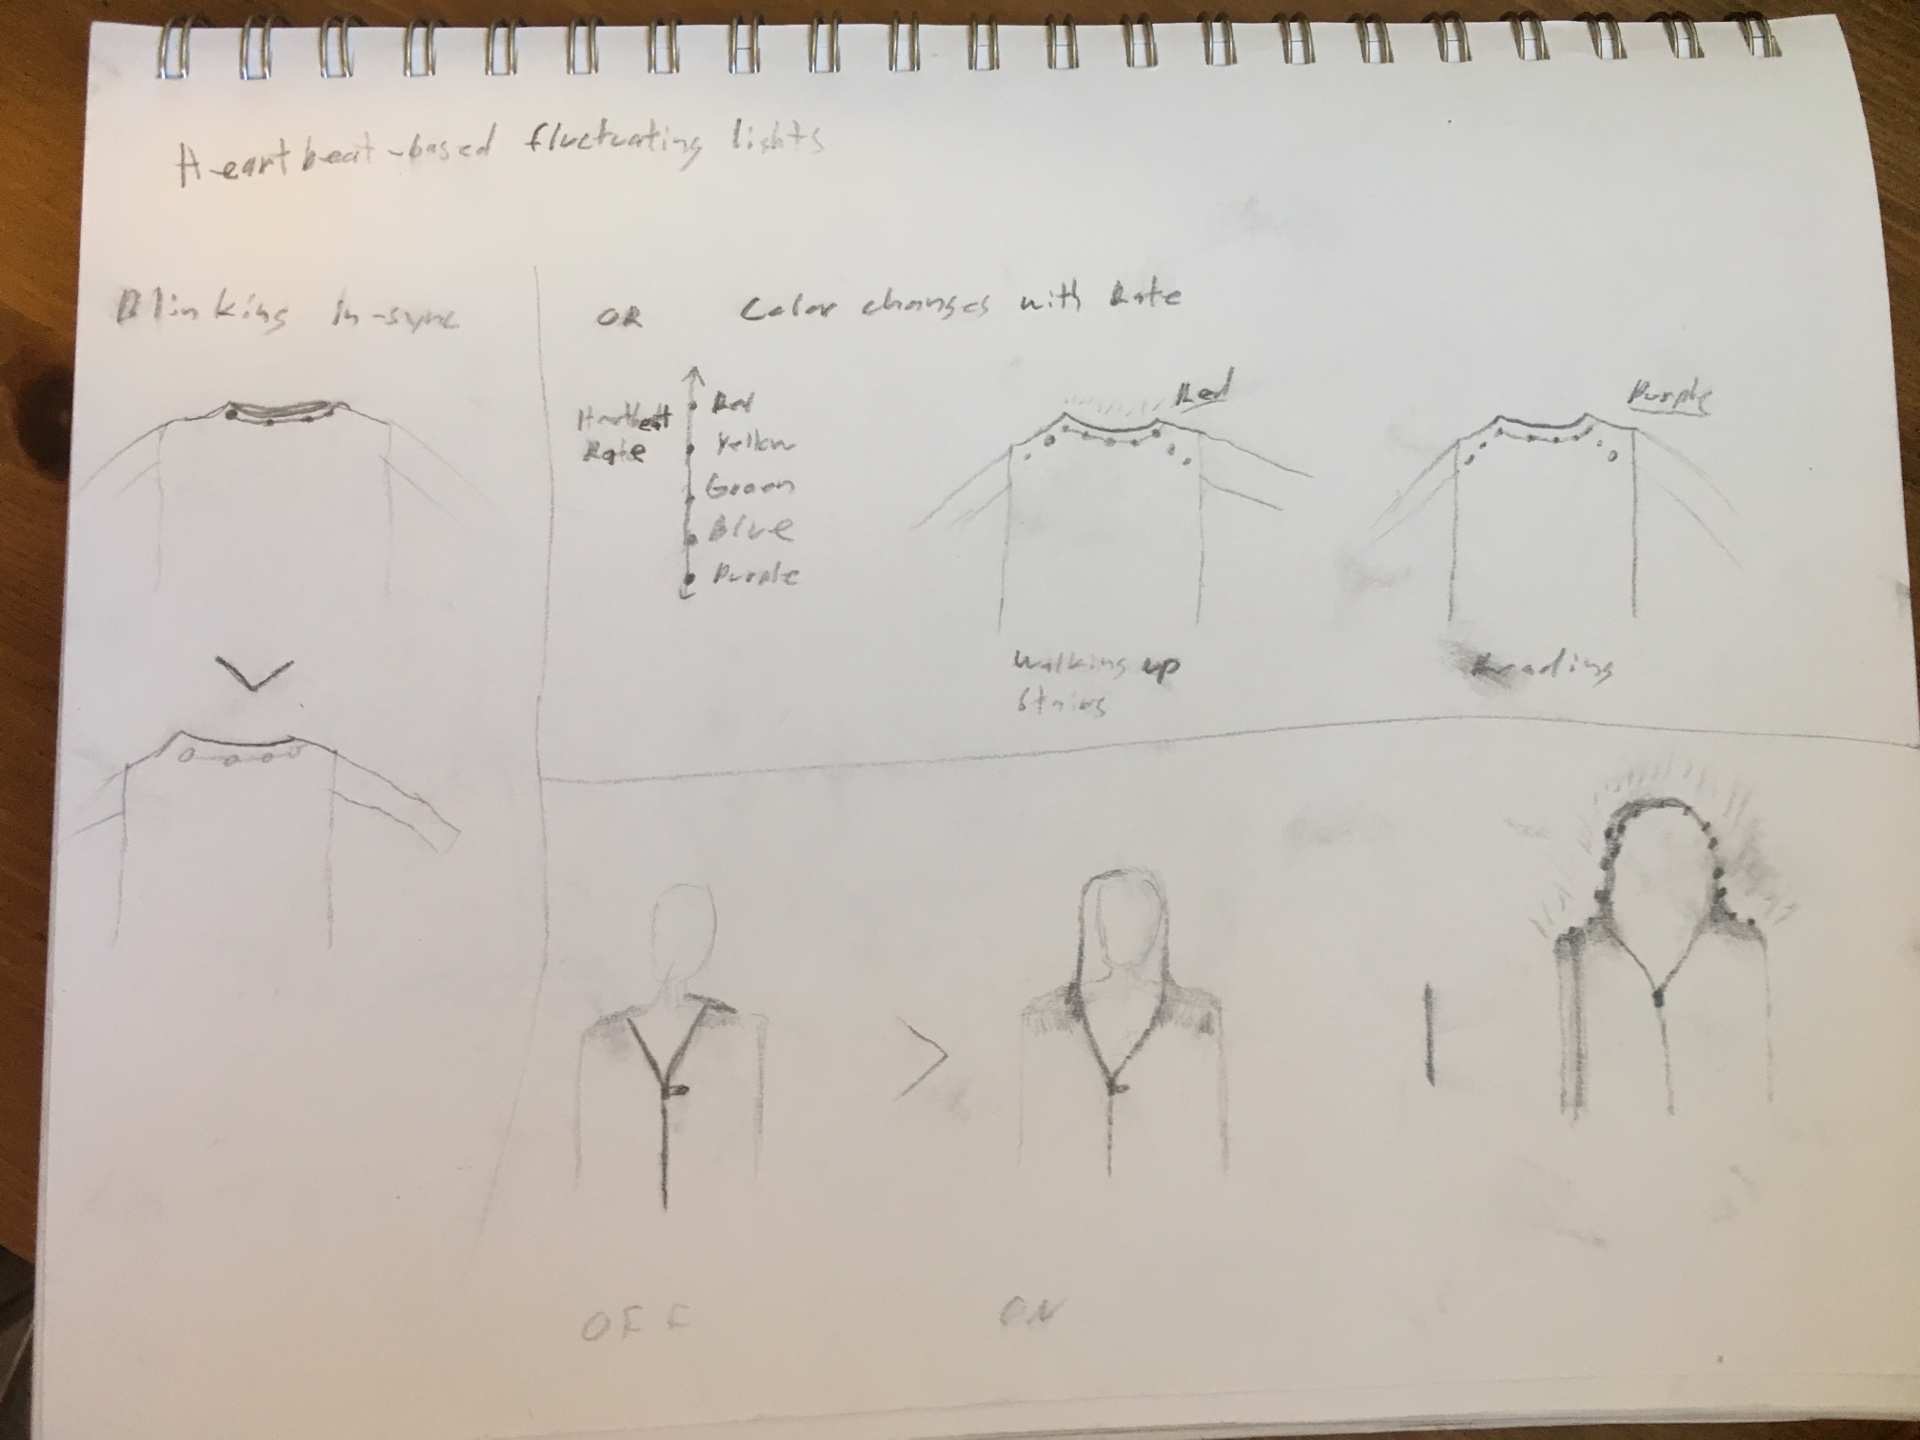 Heartbeat-based fluctuating lights
Blinking In-sync
OR
Color changes with Rate
Heartbeat
Rate
Red
Yellow
Green
Blue
Purple
Red
Walking up
Stairs
Purple
Reading
OFF
ON